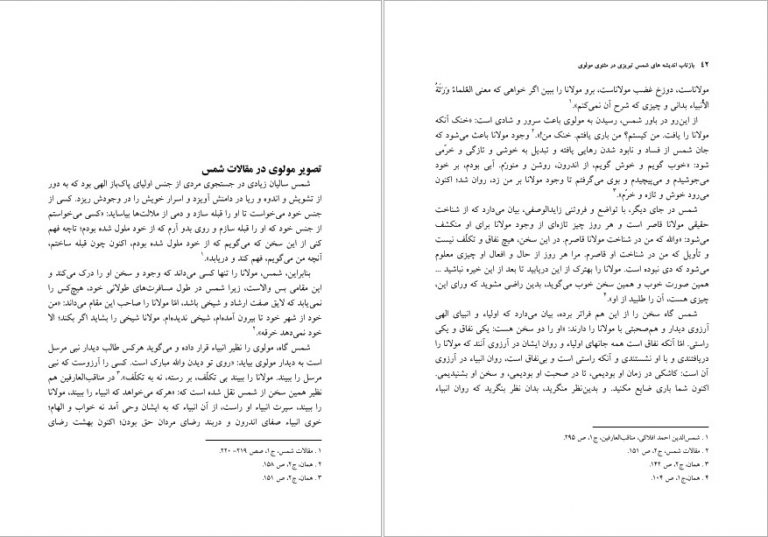 تصویر مولوی در مقالات شمس
شمس سالیان زیادی در جستجوی مردی از جنس اولیای پاک‌باز الهی بود که به دور
از تشویش و اندوه و ریا در دامنش آویزد و اسرار خویش را در وجودش ریزد. کسی از
جنس خود می‌خواست تا او را قبله سازد و دمی از ملالت‌ها بیاساید: «کسی می‌خواستم
از جنس خود که او را قبله سازم و روی بدو آرم که از خود ملول شده بودم؛ تاچه فهم
کنی از این سخن که می‌گویم که از خود ملول شده بودم، اکنون چون قبله ساختم،
آنچه من می‌گویم، فهم کند و دریابد.»۱
بنابراین، شمس، مولانا را تنها کسی می‌داند که وجود و سخن او را درک می‌کند و
این مقامی بس والاست، زیرا شمس در طول مسافرت‌های طولانی خود، هیچ‌کس را
نمی‌یابد که لایق صفت ارشاد و شیخی باشد، امّا مولانا را صاحب این مقام می‌داند: «من
خود از شهر خود تا بیرون آمده‌ام، شیخی ندیده‌ام. مولانا شیخی را بشاید اگر بکند؛ الا
خود نمی‌دهد خرقه».۲
شمس گاه، مولوی را نظیر انبیاء قرار داده و می‌گوید هرکس طالب دیدار نبی مرسل
است به دیدار مولوی بیاید: «روی تو دیدن والله مبارک است. کسی را آرزوست که نبی
مرسل را ببیند. مولانا را ببیند بی تکلّف، بر رسته، نه به تکلّف».۳ در مناقب‌العارفین هم
نظیر همین سخن از شمس نقل شده است که: «هرکه می‌خواهد که انبیاء را ببیند، مولانا
را ببیند، سیرت انبیاء او راست، از آن انبیاء که به ایشان وحی آمد نه خواب و الهام؛
خوی انبیاء صفای اندرون و دربند رضای مردان حق بودن؛ اکنون بهشت رضای
۱ . مقالات شمس، ج۱، صص ۲۱۹- ۲۲۰.
۲ . همان، ج۲، ص ۱۵۸.
۳ . همان، ج۲، ص ۱۵۱.
۴۲ بازتاب اندیشه های شمس تبریزی در مثنوی مولوی
مولاناست، دوزخ غضب مولاناست، برو مولانا را ببین اگر خواهی که معنی العُلماءُ وَرَثَةُ
الأنبیاء بدانی و چیزی که شرح آن نمی‌کنم».۱
از این‌رو در باور شمس، رسیدن به مولوی باعث سرور و شادی است: «خنک آنکه
مولانا را یافت. من کیستم؟ من باری یافتم. خنک من!».۲ وجود مولانا باعث می‌شود که
جان شمس از فساد و نابود شدن رهایی یافته و تبدیل به خوشی و تازگی و خرّمی
شود: «خوب گویم و خوش گویم، از اندرون، روشن و منوّرم. آبی بودم، بر خود
می‌جوشیدم و می‌پیچیدم و بوی می‌گرفتم تا وجود مولانا بر من زد، روان شد؛ اکنون
می‌رود خوش و تازه و خرّم».۳
شمس در جای دیگر، با تواضع و فروتنی زایدالوصفی، بیان می‌دارد که از شناخت
حقیقی مولانا قاصر است و هر روز چیز تازه‌ای از وجود مولانا برای او منکشف
می‌شود: «والله که من در شناخت مولانا قاصرم. در این سخن، هیچ نفاق و تکلّف نیست
و تأویل که من در شناخت او قاصرم. مرا هر روز از حال و افعال او چیزی معلوم
می‌شود که دی نبوده است. مولانا را بهترک از این دریابید تا بعد از این خیره نباشید ...
همین صورت خوب و همین سخن خوب می‌گوید، بدین راضی مشوید که ورای این،
چیزی هست، آن را طلبید از او».۴
شمس گاه سخن را از این هم فراتر برده، بیان می‌دارد که اولیاء و انبیای الهی
آرزوی دیدار و هم‌صحبتی با مولانا را دارند: «او را دو سخن هست: یکی نفاق و یکی
راستی. امّا آنکه نفاق است همه جانهای اولیاء و روان ایشان در آرزوی آنند که مولانا را
دریافتندی و با او نشستندی و آنکه راستی است و بی‌نفاق است، روان انبیاء در آرزوی
آن است: کاشکی در زمان او بودیمی، تا در صحبت او بودیمی، و سخن او بشنیدیمی.
اکنون شما باری ضایع مکنید. و بدین‌نظر منگرید، بدان نظر بنگرید که روان انبیاء
۱ . شمس‌الدین احمد افلاکی، مناقب‌العارفین، ج۱، ص ۲۹۵.
۲ . مقالات شمس، ج۲، ص ۱۵۱.
۳ . همان، ج۲، ص ۱۴۲.
۴ . همان،ج۱، ص ۱۰۴.